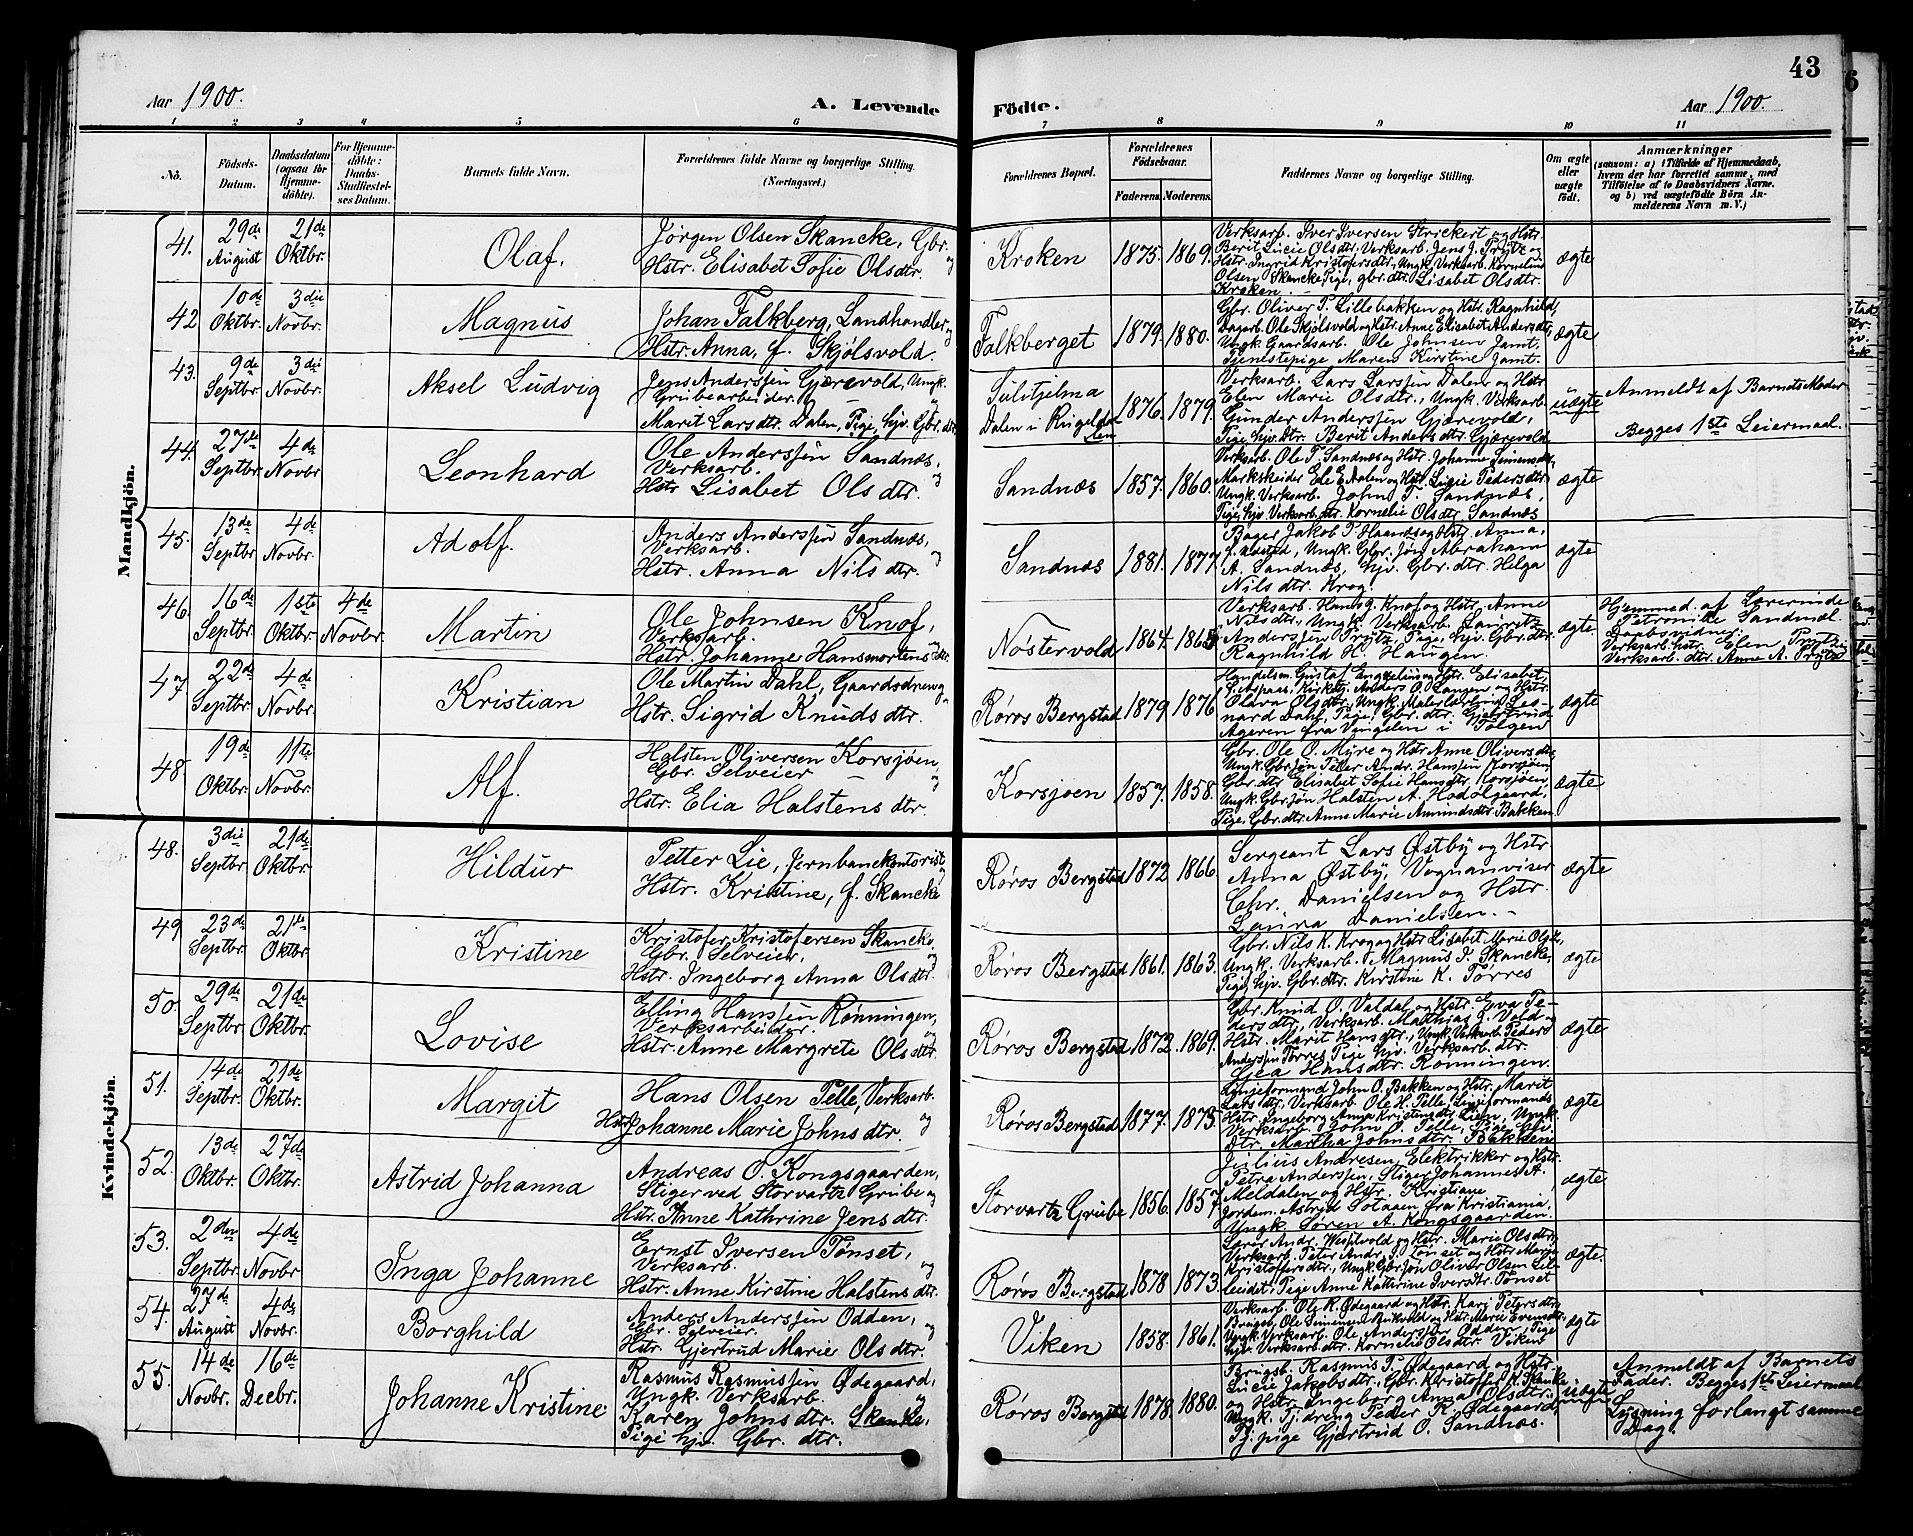 Aar 1900.
A. Levende
Födte.
Aar 1900.
43
1 2 3 4 5 6 7 8 9 10 11
No.
Födsels-
Datum.
Daabsdatum
(ogsaa for
Hjemme-
döbte).
For Hjemme-
döbte:
Daabs-
Stadfæstel-
ses Datum.
Barnets fulde Navn.
Forældrenes fulde Navne og borgerlige Stilling.
(Næringsvei.)
Forældrenes Bopæl.
Forældrenes
Födselsaar.
Faderens. Moderens.
Faddernes Navne og borgerlige Stilling.
Om ægte
eller
uægte
födt.
Anmærkninger
(saasom: a) i Tilfælde af Hjemmedaab,
hvem der har forrettet samme, med
Tilföielse af to Daabsvidners Navne.
og b) ved uægtefödte Börn An-
melderens Navn m. V.)
Mandkjön.
41. 29de August 21de Oktbr. Olaf.
Jörgen Olsen Skancke, Gbr. og
Hstr. Elisabet Sofie Olsdtr.
Kroken 1875. 1869.
Verksarb. Iver Iversen Strickert og Hstr.
Berit Lucie Olsdtr. Verksarb. Jens J. Prytz og
Hstr. Ingrid Kristofersdtr., Ungk. Verksarb. Kornelius
Olsen Skancke, Pige, gbr. dtr. Lisabet Olsdtr.
Kroken.
ægte
42 10de Oktbr. 3die Novbr. Magnus
Johan Falkberg, Landhandler og
Hstr. Anna, f. Skjölsvold.
Falkberget 1879. 1880.
Gbr. Oliver P. Lillebakken og Hstr. Ragnhild,
Dagarb. Ole Skjölsvold og Hstr. Anne Elisabet Andersdtr,
Ungk. Gaardsarb. Ole Johnsen Jamt.
Tjenestepige Maren Kirstine Jamt.
ægte
43. 9de Septbr. 3die Novbr. Aksel Ludvig
Jens Andersen Gjærevold, Ungk.
Grubearbeider. og
Marit Larsdtr. Dalen, Pige, hjv. Gbr. dtr.
Sulitjelma
Dalen i Ringelda
len
1876. 1879.
Verksarb. Lars Larssen Dalen og Hstr.
Elen Marie Olsdtr., Ungk. Verksarb.
Gunder Anderssen Gjærevold,
Pige, hjv. Dtr. Berit Andersdtr. Gjærevold
uægte
Anmeldt af Barnets Moder
Begges 1ste Leiermaal.
44. 27de Septbr. 4de Novbr. Leonhard
Ole Anderssen Sandnæs,
Verksarb. og
Hstr. Lisabet Olsdtr.
Sandnæs 1857. 1860.
Verksarb. Ole P. Sandnæs og Hstr. Johanne Simensdtr,
Markskeider Ede E. Aalen og Hstr. Lucie Pedersdtr
Ungk. Verksarb. John T. Sandnæs,
Pige, hjv. Verksarb. dtr. Kornelie Olsdtr. Sandnæs
ægte
45. 13de Septbr. 4de Novbr. Adolf.
Anders Anderssen Sandnæs,
Verksarb. og
Hstr. Anna Nilsdtr.
Sandnæs 1881. 1877.
Bager Jakob P. Haanes og Hstr. Anna,
Ungk. Gbr. Jøn Abraham
A. Sandnæs, hjv. Gbr. dtr. Helga
Nilsdtr. Krog.
ægte
46. 16de Septbr. 1ste Oktbr. 4de Novbr. Martin
Ole Johnsen Knof,
Verksarb. og
Hstr. Johanne Hansmortensdtr.
Nöstervold 1864. 1865
Verksarb. Hans J. Knof og Hstr. Anne
Nilsdtr., Ungk. Verksarb. Lauritz
Anderssen Prytz, Pige, hjv. Gbr. dtr.
Ragnhild H. Haugen.
ægte
Hjemmed. af Lærerinde
Petronille Sandmel.
Daabsvidner:
Verksarb. hstr. Elen Prytz og
Verksarb. dtr. Anne A. Prytz
47. 22de Septbr. 4de Novbr. Kristian
Ole Martin Dahl, Gaardsdreng og
Hstr. Sigrid Knudsdtr.
Röros Bergstad 1879. 1876
Handelsm. Gustaf Engzelius og Hstr. Elisabet,
f. Aspaas, Kirketj. Anders O. Langen og Hstr.
Olava Olsdtr., Ungk. Malerlærling Leo-
nard Dahl, Pige, Gbr. dtr. Gjertrud
Ageren fra Vingelen i Tolgen
ægte
48. 19de Oktbr. 11te Novbr. Alf.
Halsten Oliversen Korsjöen,
Gbr. Selveier og
Hstr. Elia Halstensdtr.
Korsjöen 1857. 1858.
Gbr. Ole O. Myre og Hstr. Anne Oliversdtr,
Ungk. Gbr. søn Peter Andr. Hanssen Korsjöen,
Gbr. dtr. Elisabet Sofie Hansdtr. Korsjöen,
Ungk. Gbr. søn Halsten A. Hodölgaard,
Pige, Gbr. dtr. Anne Marie Amundsdtr. Bakken
ægte
Kvindekjön.
48. 3die Septbr. 21de Oktbr. Hildur
Petter Lie, Jernbanekontorist og
Hstr. Kristine, f. Skancke
Röros Bergstad 1872 1866
Sergeant Lars Østby og Hstr
Anna Østby, Vognanviser
Chr. Danielsen og Hstr.
Laura Danielsen.
ægte
49 23de Septbr. 21de Oktbr. Kristine
Kristofer Kristofersen Skancke,
Gbr. Selveier, og
Hstr. Ingeborg Anna Olsdtr.
Röros Bergstad 1861. 1863.
Gbr. Nils K. Krog og Hstr. Lisabet Marie Olsdtr,
Ungk. Verksarb. Magnus J. Skancke,
Pige, hjv. Gbr. dtr. Kirstine K. Törres
ægte
50. 29de Septbr. 21de Oktbr. Lovise
Elling Hanssen Rönningen,
Verksarbeider. og
Hstr. Anne Margrete Olsdtr.
Röros Bergstad 1872. 1869.
Gbr. Knud O. Valdal og Hstr. Eva Pe-
dersdtr, Verksarb. Matthias J. Vold og
Hstr. Marit Hansdtr., Ungk. Verksarb. Peder
Anderssen Törres, Pige hjv. Verksarb. dtr.
Gea Hansdtr. Rönningen.
ægte
51. 14de Septbr. 21de Oktbr. Margit
Hans Olsen Pelle, Verksarb. og
Hstr. Johanne Marie Johnsdtr.
Röros Bergstad 1877. 1873.
Linjeformand John O. Bakken og Hstr. Marit
Larsdtr, Verksarb. Ole H. Pelle, Linjeformands
Hstr. Ingeborg Anna Kristensdtr. Lien, Ungk.
Verksarb. John O. Pelle, Pige hjv.
Dtr. Martha Johnsdtr. Bakken
ægte
52. 13de Oktbr. 27de Oktbr. Astrid Johanna
Andreas O. Kongsgaarden,
Stiger ved Storvartz Grube og
Hstr. Anne Kathrine Jensdtr.
Storvartz Grube 1856. 1857.
Julius Andresen, Elektrikker og Hstr.
Petra Anderssen, Stiger Johannes A.
Meldalen og Hstr. Kristiane
Jordem. Astrid Solaaen fra Kristiania,
Ungk. Sören A. Kongsgaarden.
ægte
53. 2den Septbr. 4de Novbr. Inga Johanne
Ernst Iversen Tönset,
Verksarb. og
Hstr. Anne Kirstine Halstensdtr.
Röros Bergstad 1878 1873.
Lærer Andr. Westvold og Hstr. Marie Olsdtr,
Verksarb. Peter Andr. I. Tönset og Hstr Marie
Kristoffersdtr, Ungk. Gbr. søn Oliver Olsen Lil-
leidet, Pige Anne Kathrine Iversdtr. Tönset
ægte.
54. 27de August 4de Novbr. Borghild
Anders Anderssen Odden,
Gbr. Selveier og
Hstr. Gjertrud Marie Olsdtr.
Viken 1858. 1861.
Verksarb. Ole K. Ødegaard og Hstr. Kari Petersdtr,
Brugsb. Ole Simensen Bukvold og Hstr. Marie Evensdtr.
Ungk. Verksarb. Ole Anderssen Odden, Pige
hjv. Verksarb. dtr. Kornelie Olsdtr. Viken
ægte
55. 14de Novbr. 16de Decbr. Johanne Kristine.
Rasmus Rasmussen Ødegaard,
Ungk. Verksarb. og
Karen Johnsdtr. Skancke,
Pige hjv. Gbr. dtr.
Röros Bergstad 1878. 1880.
Brugsb. Rasmus P. Ødegaard og Hstr.
Lucie Jakobsdtr, Gbr. Kristoffer K. Skancke
og Hstr. Ingeborg Anna Olsdtr.
Ungk. Tj.dreng Peder R. Ødegaard,
Tj.pige Gjertrud O. Sandnæs.
uægte
Anmeldt af Barnets
Fader. Begges 1ste Leiermaal
Lysning forlangt samme
Dag.